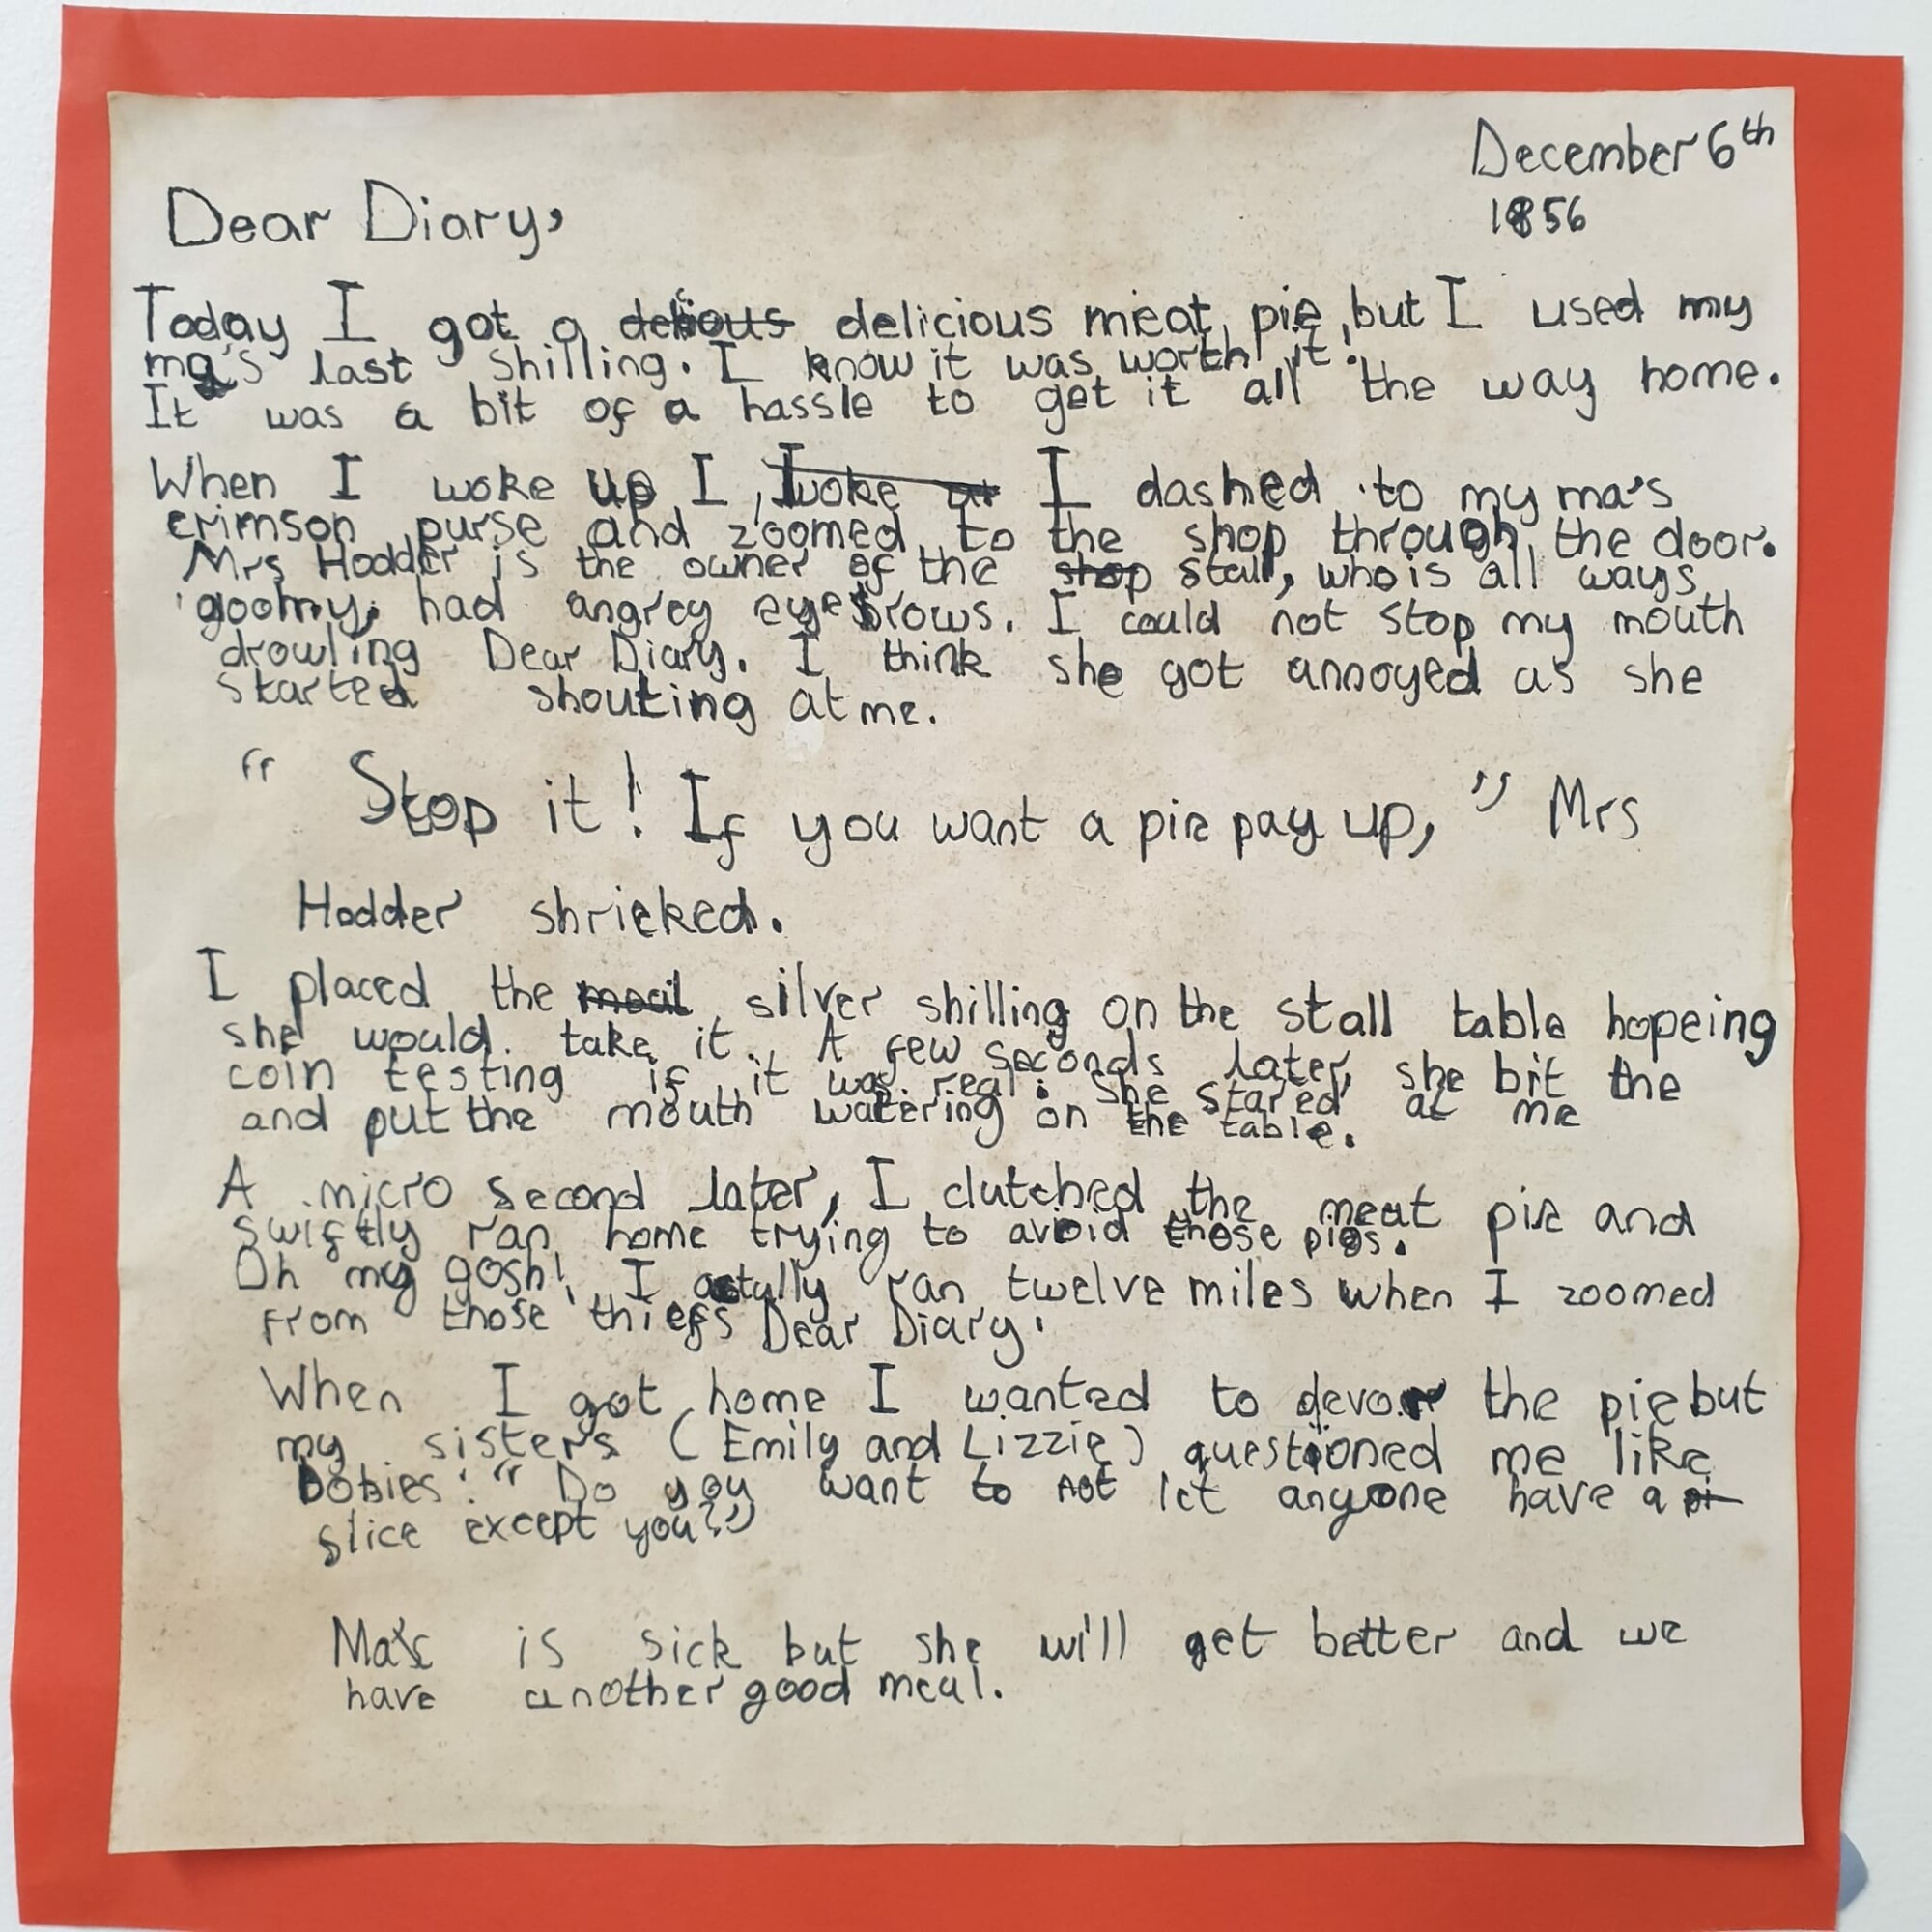 December 6th
1856
Dear Diary,
Today I got a delicious meat pie, but I used my
ma's last shilling. I know it was worth it!
It was a bit of a hassle to get it all the way home.
When I woke up I I woke at I dashed to my ma's
crimson purse and zoomed to the shop through the door.
Mrs Hodder is the owner of the shop stall, who is all ways
goomy, had angrey eyebrows. I could not stop my mouth
drowling Dear Diary. I think she got annoyed as she
started shouting at me.
“ Stop it! If you want a pie pay up, ” Mrs
Hodder shrieked.
I placed the silver shilling on the stall table hopeing
she would take it. A few seconds later, she bit the
coin testing if it was real. She stared at me
and put the mouth watering on the table.
A micro second later, I clutched the meat pie and
swiftly ran home trying to avoid those pigs.
Oh my gosh! I actully ran twelve miles when I zoomed
from those thiefs Dear Diary.
When I got home I wanted to the pie but
my sisters (Emily and Lizzie) questioned me like
bobies: “ Do you want to not let anyone have a
slice except you?”
is sick but she will get better and we
have another good meal.